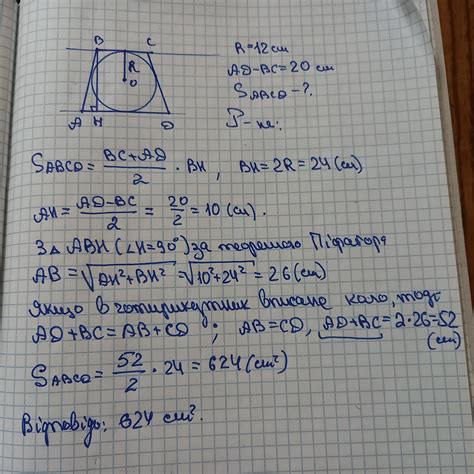 B C
R
O
A H D
R=12см
AD-BC=20 см
S_ABCD-?
S_ABCD = (BC+AD)/2 · BH, BH=2R=24(см)
AH = (AD-BC)/2 = 20/2 = 10 (см).
З Δ ABH (∠H=90°) за теоремою Піфагора
AB = √(AH²+BH²) = √(10²+24²) = 26 (см)
Якщо в чотирикутник вписане коло, тоді
AD+BC=AB+CD ; AB=CD, AD+BC=2·26=52
(см)
S_ABCD = 52/2 · 24 = 624 (см²)
Відповідь: 624 см².